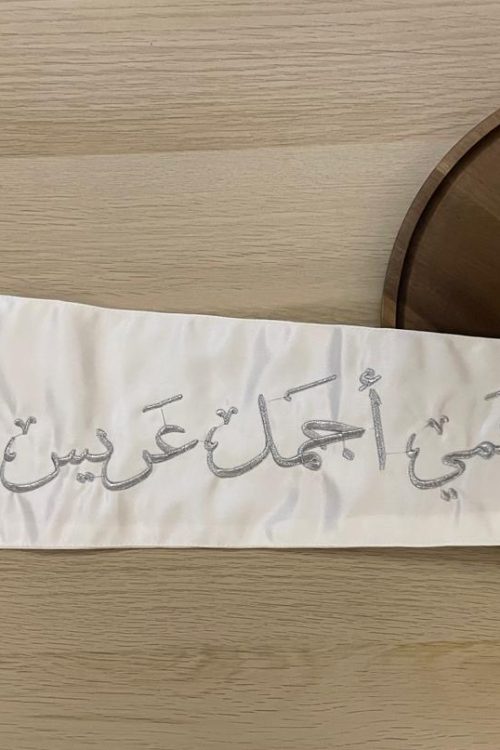 أجمل عريس